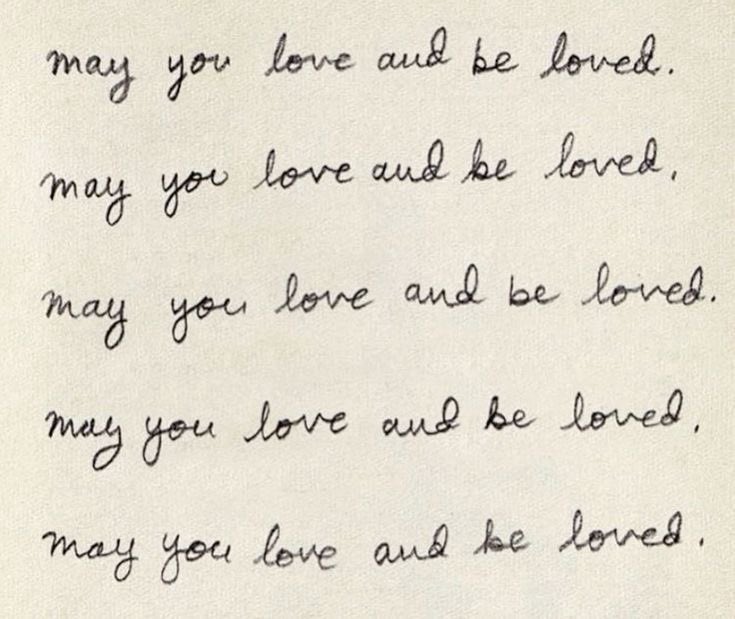 may you love and be loved.
may you love and be loved,
may you love and be loved.
may you love and be loved,
may you love and be loved.